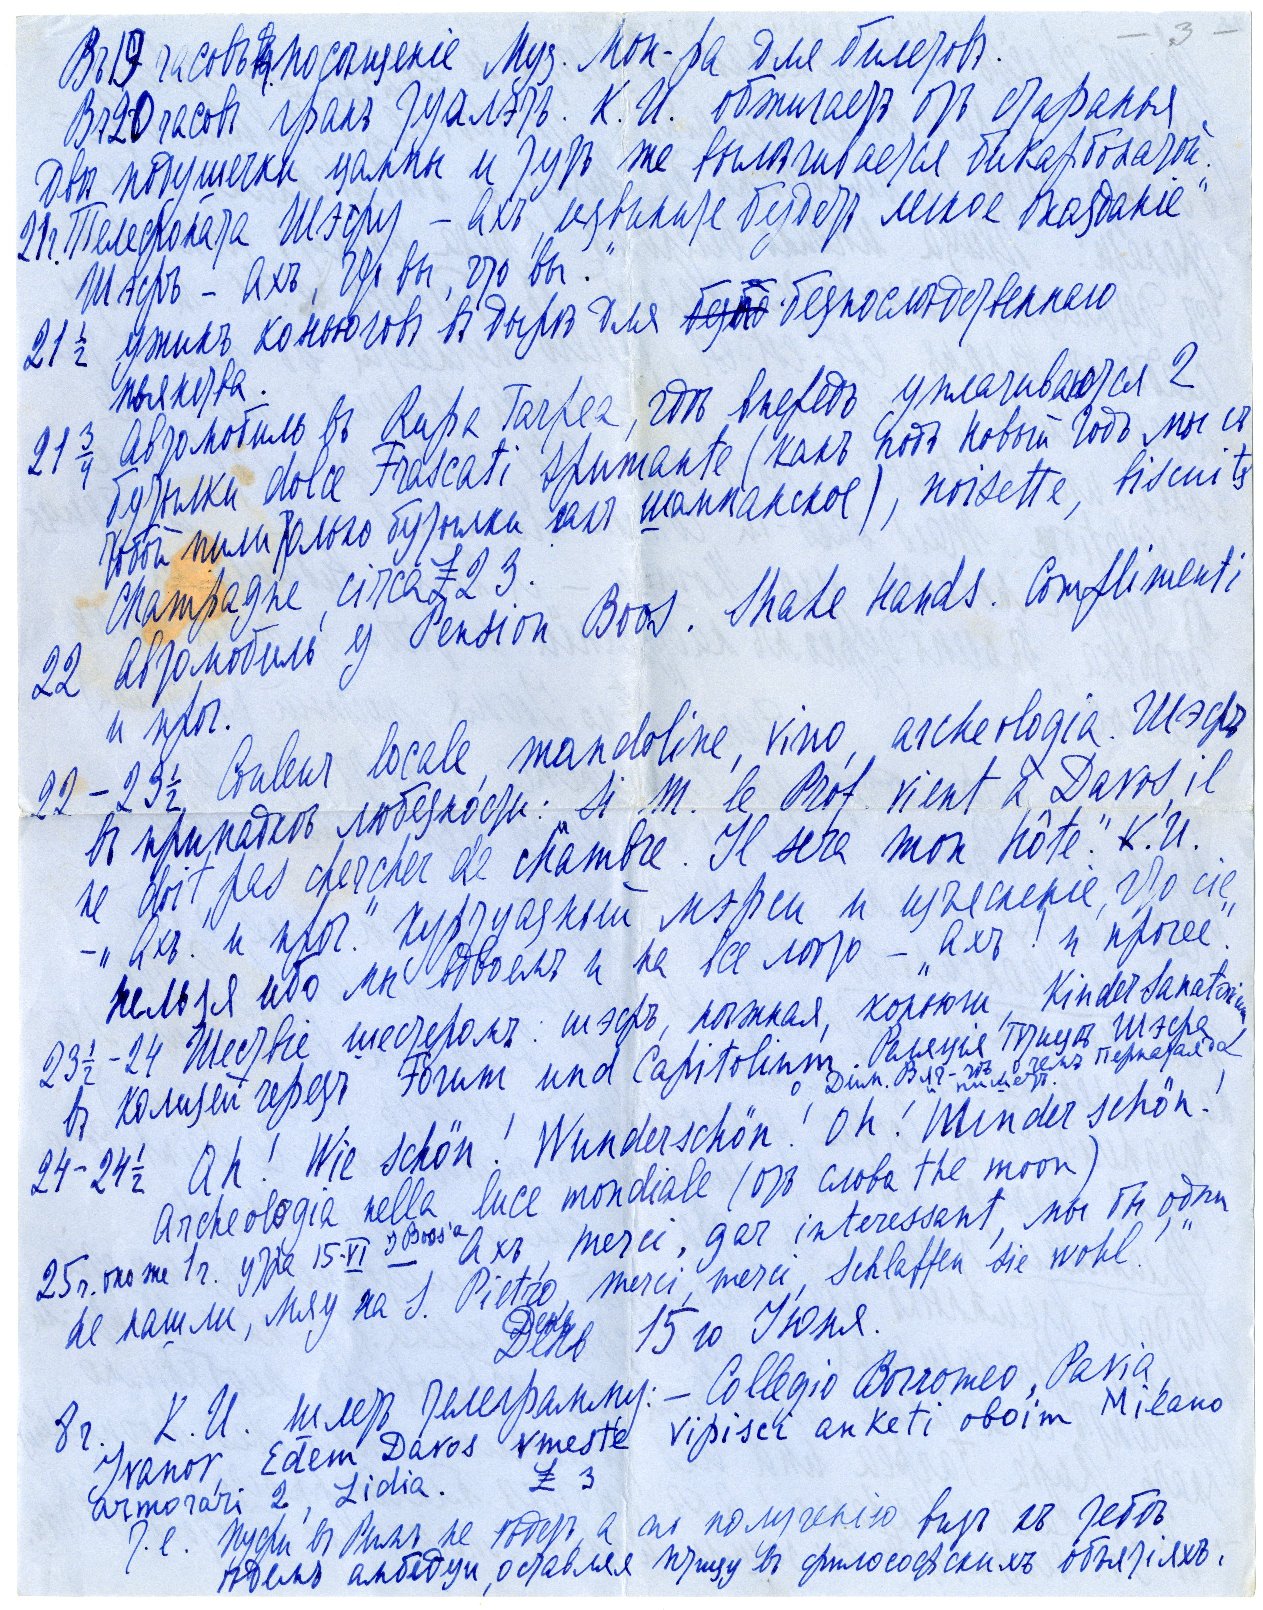 – 3 –
Въ 19 часовъ посѣщеніе Муз. Мон-ра для билетовъ.
Въ 20 часовъ гранъ туалэтъ. К. И. обжигаетъ отъ старанья
двѣ подушечки и тутъ же вылѣчивается бикарбонатой.
21 г. Телефоната Шэфу – Ахъ, извините будетъ легкое опозданіе"
Шэфъ – Ахъ, что вы, что вы."
21 1/2 ужинъ коньюговъ въ дырѣ для безпослѣдственнаго
пьянства.
21 3/4 Автомобиль въ Rupa Tarpea, гдѣ впередъ уплачиваются 2
бутылки dolce Frascati spumante (какъ подъ Новый Годъ мы съ
тобой пили только бутылки какъ шампанское), noisette, biscuits
champagne, circa £ 23.
22 Автомобиль у Pension Boos. Shake Hands. Complimenti
и проч.
22 – 23 1/2 Couleur locale, mandoline, vino, archeologia. Шэфъ
въ припадкѣ любезности: "Si M. le Prof. vient à Davos, il
ne doit pas chercher de chambre. Il sera mon hôte." К. И.
– "Ахъ" и проч." Куртуазный мэрси и изъясненіе, что сіе
нельзя ибо мы вдвоемъ и на все лѣто – "Ахъ! и прочее".
23 1/2 – 24 Шествіе шестеромъ: шэфъ, коньюги, Kindersanatorium
въ Колизей черезъ Forum und Capitolium. Шэфа
о Дим. Вяч-чѣ, о чемъ
и пишетъ.
24 – 24 1/2 Ah! Wie schön! Wunderschön! Oh! Wunderschön!
Archeologia nella luce mondiale (отъ слова the moon)
25 г. оно же 1 г. утра 15-VI Boos'a Ахъ, merci, gar interessant, мы бы одни
не нашли, мяу на S. Pietro, merci, merci, schlaffen sie wohl!"
День 15го Іюня.
8 г. К. И. шлетъ телеграмму: – Collegio Borromeo, Pavia,
Ivanov, Edem Davos vmeste vipisci anketi oboim Milano
armorari 2, Lidia. £ 3
Т. е. въ Римъ не ѣдетъ, а по полученію визъ къ тебѣ
ѣдемъ оставляя птицу въ философскихъ объятіяхъ.